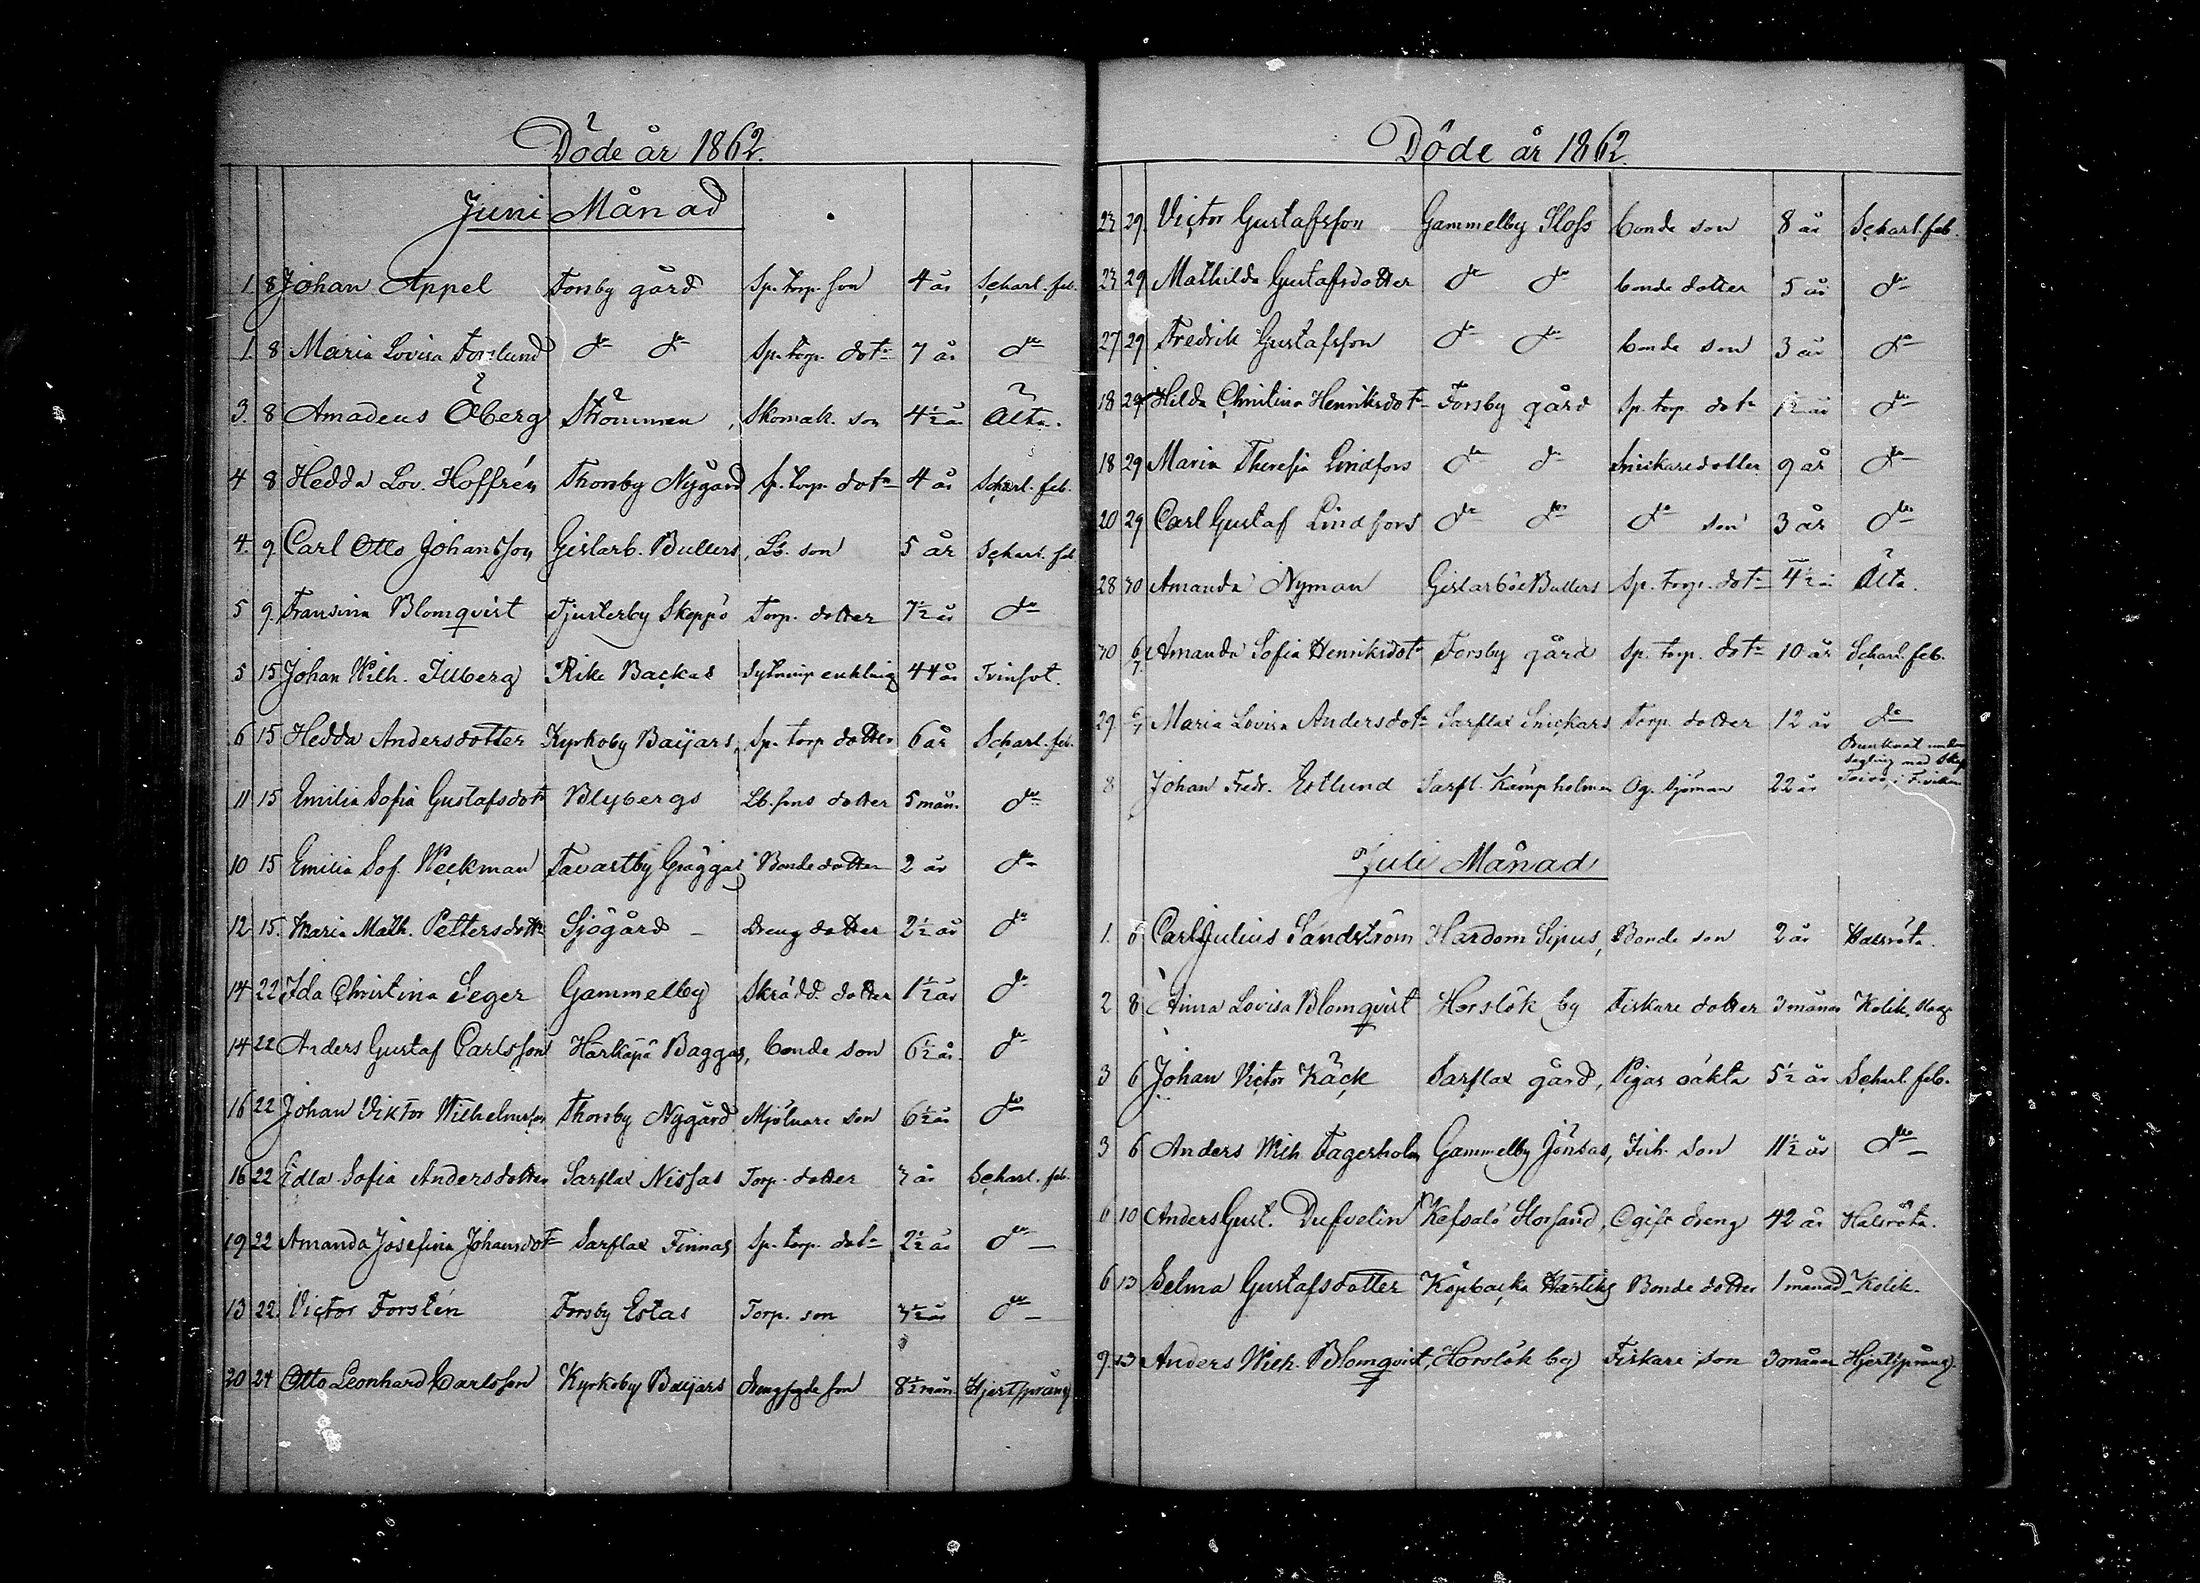 Döde år 1862.
Juni Månad
1. 8 Johan Appel Forsby gård Sp. torp. son 4 år Scharl. feb.
1. 8 Maria Lovisa Forslund do do Sp. torp. dotr 7 år do
3. 8 Amadeus Öberg Strömmen, Skomak. son 4½ år Älta.
4 8 Hedda Lov. Hoffrén Thorsby Nygård Sp. torp. dotr 4 år Scharl. feb.
4. 9. Carl Otto Johansson Gislarb. Bullers, Lb. son 5 år Scharl. feb
5 9. Fransina Blomqvist Tjusterby Skeppö Torp. dotter 7½ år do
5 15 Johan Wilh. Illberg Rike Backas Sytning enkling 44 år Tvinsot.
6 15 Hedda Andersdotter Kyrkoby Baijars, Sp. torp dotter 6 år Scharl. feb.
11 15 Emilia Sofia Gustafsdotr Blybergs Lb. sons dotter 5 mån. do
10 15 Emilia Sof. Weckman Tavastby Gräggas Bonde dotter 2 år do
12 15. Maria Math. Pettersdotter Sjögård - Dreng dotter 2½ år do
14 22 Ida Christina Seger Gammelby Skrädd. dotter 1½ år do
14 22 Anders Gustaf Carlsson Härkäpä Baggas, bonde son 6½ år do
16 22 Johan Viktor Wilhelmsson Thorsby Nygård Mjölnare son 6½ år do
16 22 Edla Sofia Andersdotter Sarflax Nissas Torp. dotter 7 år Scharl. feb.
19 22 Amanda Josefina Johansdotr Sarflax Finnas Sp. torp. dotr 2½ år do
13 22. Victor Forstén Forsby Estas Torp. son 3½ år do
20 24 Otto Leonhard Carlsson Kyrkoby Baijars drengfogde son 8½ mån Hjertsprång
Döde år 1862.
23 29. Victor Gustafsson Gammelby Sloss bonde son 8 år Scharl. feb.
23 29 Mathilda Gustafsdotter do do bonde dotter 5 år do
27 29 Fredrik Gustafsson do do bonde son 3 år do
18 29 Hilda Christina Henriksdotr Forsby gård Sp. torp. dotr 1½ år do
18 29 Maria Theresia Lindfors do do Snickaredotter 9 år do
20 29 Carl Gustaf Lindfors do do do son 3 år do
28 30 Amanda Nyman Gislarböle Bullers Sp. torp. dotr 4½ år Älta.
30 6/7 Amanda Sofia Henriksdotr Forsby gård Sp. torp. dotr 10 år Scharl. feb.
29. 6/7 Maria Lovisa Andersdotr Sarflax Snickars Torp. dotter 12 år do
8 Johan Fredr. Estlund Sarfl. Kämpholmen Og. Sjöman 22 år Drunknat under segling med Skep
Juli Månad
1. 6 Carl Julius Sandström Hardom Sipus, Bonde son 2 år Halsröta.
2 8 Anna Lovisa Blomqvist Horslök by Fiskare dotter 3 månar Kolik, slag
3 6 Johan Victor Käck Sarflax gård, Pigas oäkta 5½ år Scharl. feb.
3 6 Anders Wilh. Fagerholm Gammelby Jönsas, Fisk. Son 11½ år do
6 10 Anders Gust. Dufvelin Kefsalö Storsand, Ogift dreng 42 år Halsröta.
6 13 Selma Gustafsdotter Köpbacka Hartiks Bonde dotter 1 månad Kolik.
9. 13 Anders Wilh. Blomqvist, Horslök by Fiskare son 3 månar Hjertsprång.